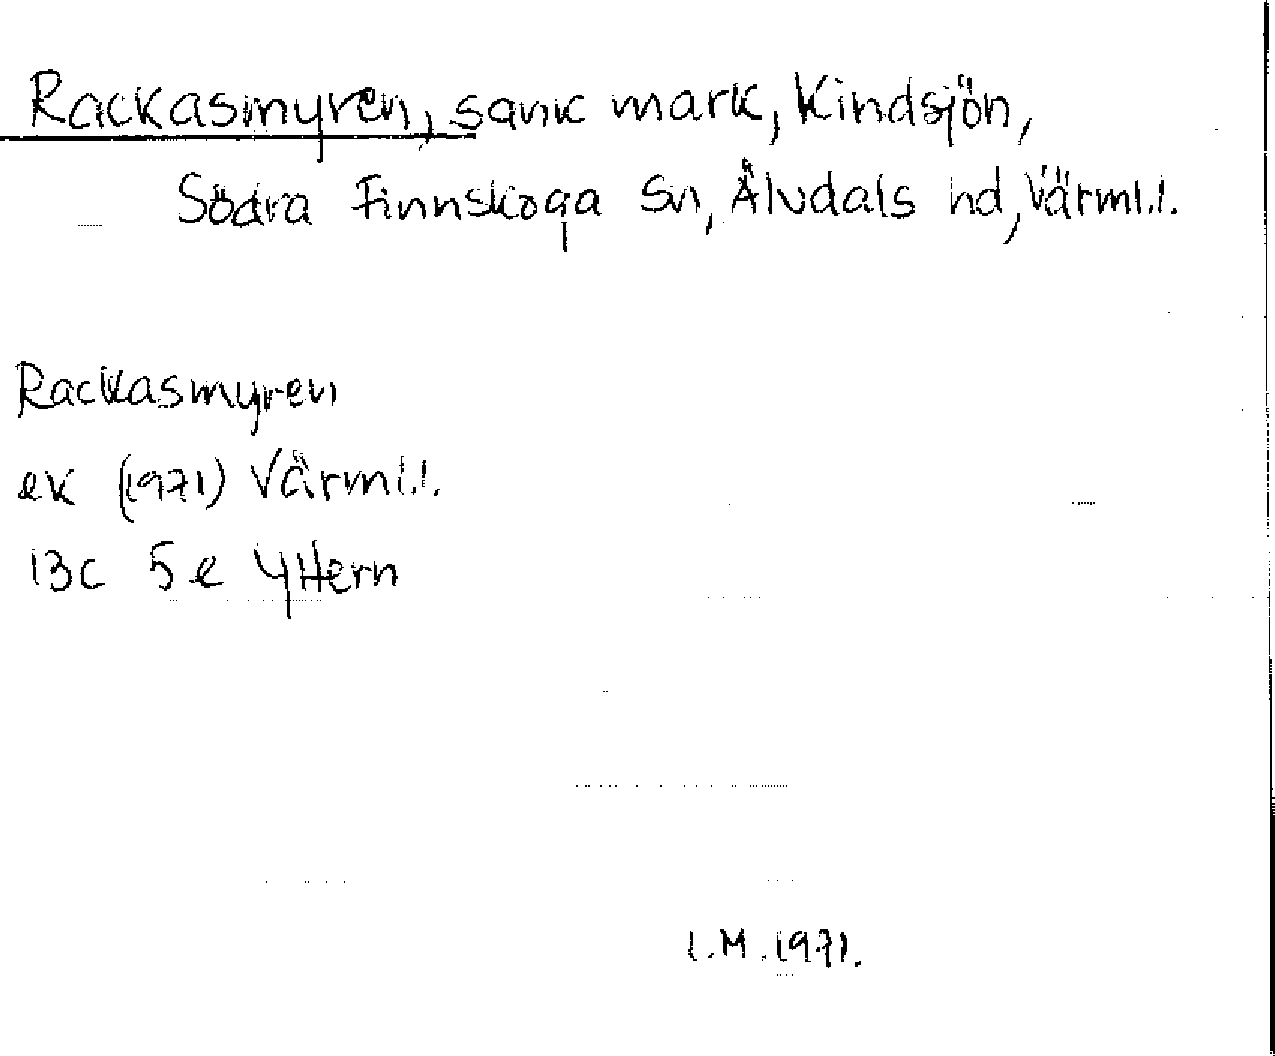 Rackasmyren, sank mark, Kindsjön,
Södra Finnskoga sn, Älvdals hd, Värml.l.
Rackasmyren
ek (1971) Värml.l.
13c 5e Yttern
I.M.1971.